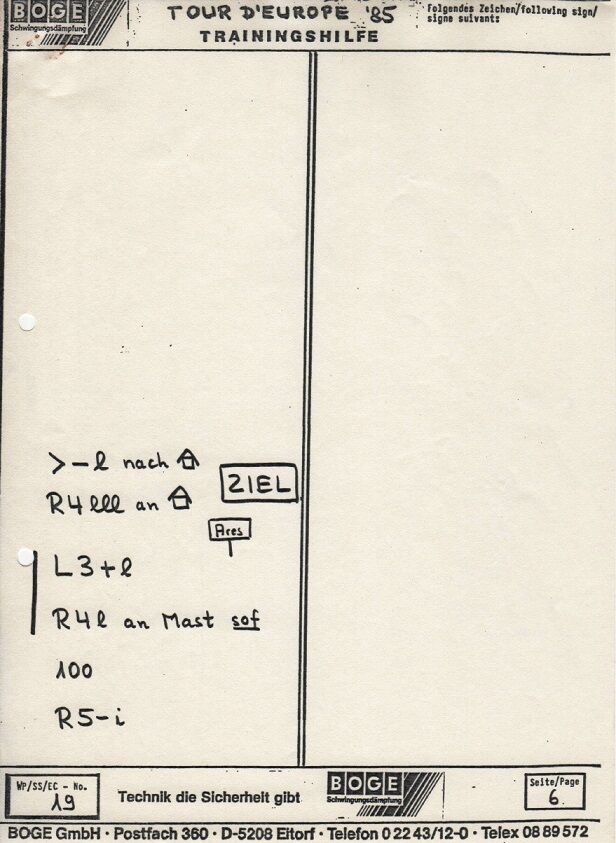 BOGE
Schwingungsdämpfung
TOUR D'EUROPE '85
TRAININGSHILFE
Folgendes Zeichen/following sign/
signe suivant:
>-l nach
R4 lll an
ZIEL
Ares
L3+l
R4l an Mast sof
100
R5-i
WP/SS/EC - No.
19
Technik die Sicherheit gibt
BOGE
Schwingungsdämpfung
Seite/Page
6
BOGE GmbH · Postfach 360 · D-5208 Eitorf · Telefon 0 22 43/12-0 · Telex 08 89 572